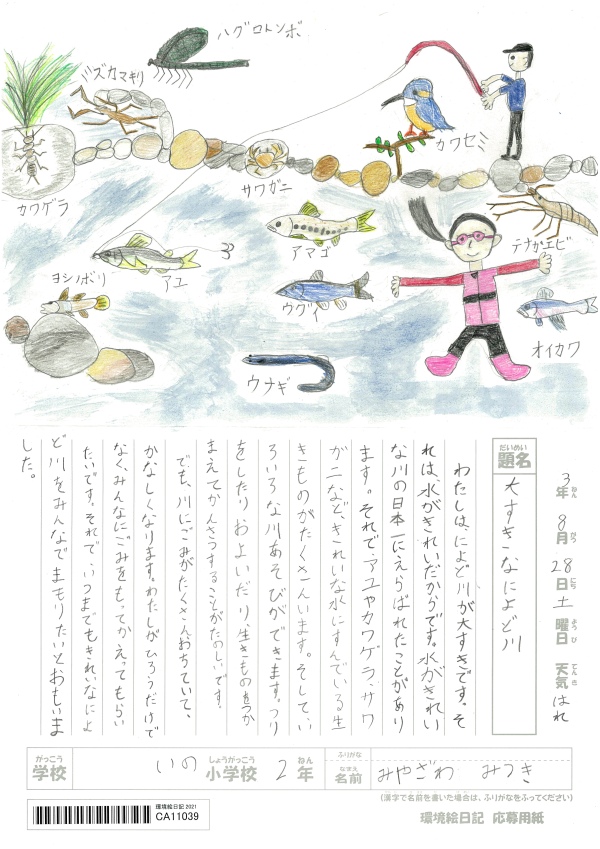 ハグロトンボ
ミズカマキリ
カワセミ
サワガニ
カワゲラ
テナガエビ
アマゴ
ヨシノボリ
アユ
ウグイ
オイカワ
ウナギ
3年 ねん 8月 がつ 28日 にち 土曜日 ようび 天気 てんき はれ
だいめい 題名 大すきなによど川
わたしは、によど川が大すきです。そ
れは、水がきれいだからです。水がきれい
な川の日本一にえらばれたことがあり
ます。それで、アユやカワゲラ、サワ
ガニなど、きれいな水にすんでいる生
きものがたくさんいます。そして、い
ろいろな川あそびができます。つり
をしたり、およいだり、生きものをつか
まえてかんさつすることがたのしいです。
でも、川にごみがたくさんおちていて、
かなしくなります。わたしがひろうだけで
なく、みんなにごみをもってかえってもらい
たいです。それで、いつまでもきれいなによ
ど川をみんなでまもりたいとおもいま
した。
がっこう 学校 いの しょうがっこう 小学校 2 ねん 年 ふりがな なまえ 名前 みやざわ みつき
(漢字で名前を書いた場合は、ふりがなをふってください)
環境絵日記 2021
CA11039
環境絵日記 応募用紙